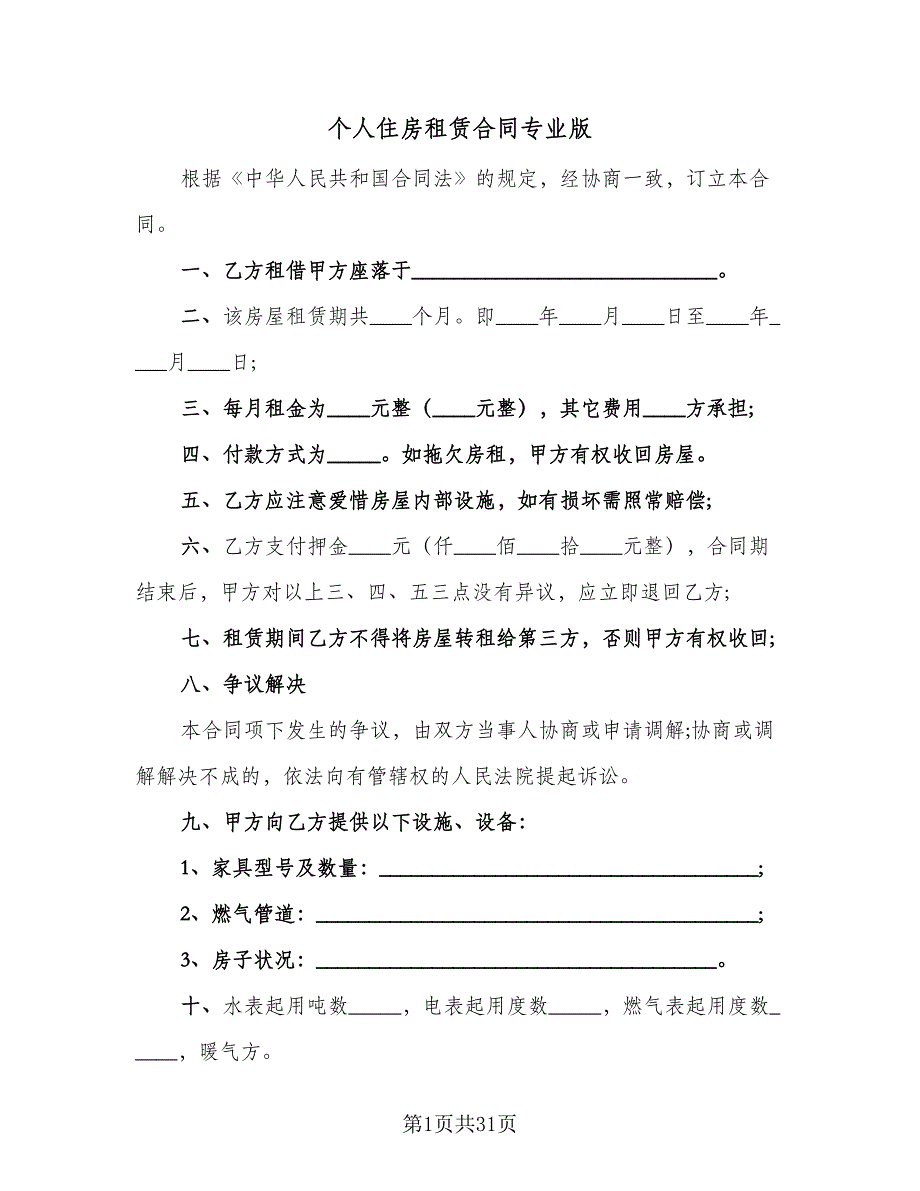 个人住房租赁合同专业版
根据《中华人民共和国合同法》的规定，经协商一致，订立本合
同。
一、乙方租借甲方座落于_____________________________。
二、该房屋租赁期共____个月。即____年____月____日至____年_
___月____日;
三、每月租金为____元整（____元整），其它费用____方承担;
四、付款方式为_____。如拖欠房租，甲方有权收回房屋。
五、乙方应注意爱惜房屋内部设施，如有损坏需照常赔偿;
六、乙方支付押金____元（仟____佰____拾____元整），合同期
结束后，甲方对以上三、四、五三点没有异议，应立即退回乙方;
七、租赁期间乙方不得将房屋转租给第三方，否则甲方有权收回;
八、争议解决
本合同项下发生的争议，由双方当事人协商或申请调解;协商或调
解解决不成的，依法向有管辖权的人民法院提起诉讼。
九、甲方向乙方提供以下设施、设备：
1、家具型号及数量：____________________________________;
2、燃气管道：__________________________________________;
3、房子状况：______________________________________。
十、水表起用吨数_____，电表起用度数_____，燃气表起用度数_
____，暖气方。
第1页共31页